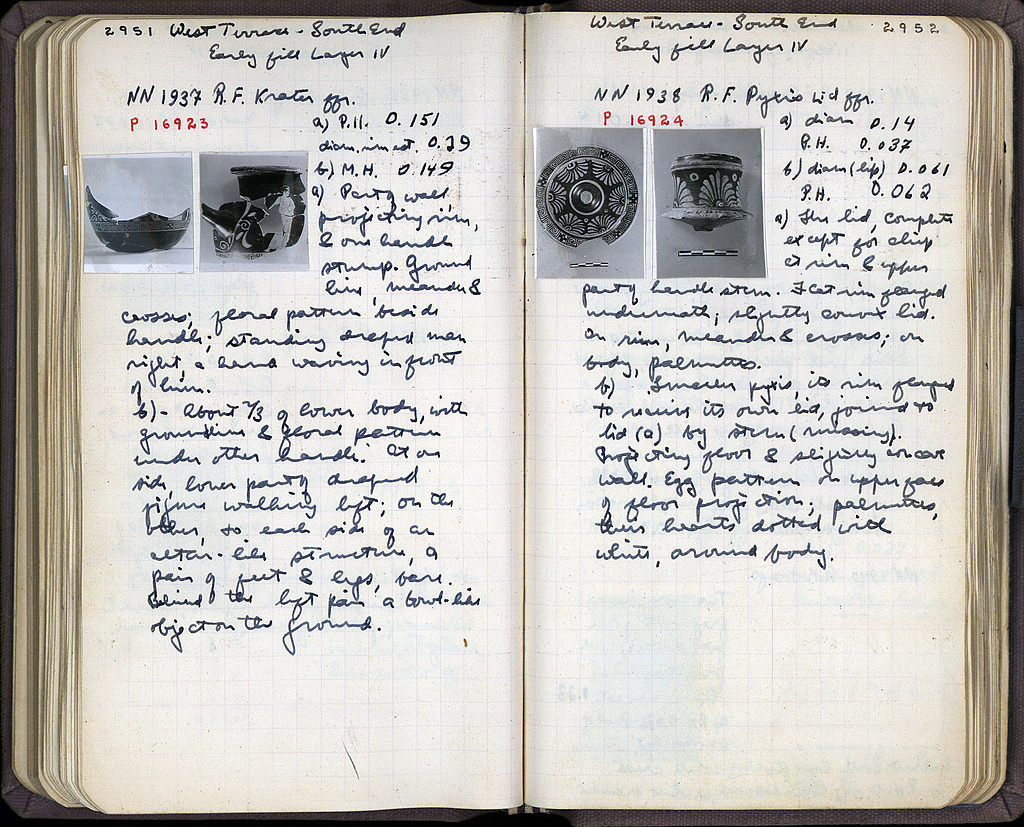 2951 West Terrace - South End
Early fill Layer IV
NN 1937 R.F. Krater ffr.
P 16923
a) P.H. 0.151
diam. rim est. 0.29
b) M.H. 0.149
a) Part of wall,
projecting rim,
& one handle
stump. Ground
line, meander &
crosses; floral pattern beside
handle; standing draped man
right, a hand waving in front
of him.
b) - About 2/3 of lower body, with
groundline & floral pattern
under other handle. At one
side, lower part of draped
figure walking left; on the
other, to each side of an
altar-like structure, a
pair of feet & legs, bare.
Behind the left pair a bowl-like
object on the ground.
West Terrace - South End 2952
Early fill Layer IV
NN 1938 R.F. Pyxis lid ffr.
P 16924
a) diam 0.14
P.H. 0.037
b) diam (lip) 0.061
P.H. 0.062
a) The lid, complete
except for chip
at rim & upper
part of handle stem. Flat rim flanged
underneath; slightly convex lid.
On rim, meander & crosses; on
body, palmettes.
b) Smaller pyxis, its rim flanged
to receive its own lid, joined to
lid (a) by stem (missing).
Projecting floor & slightly concave
wall. Egg pattern on upper face
of floor projection; palmettes,
their hearts dotted with
white, around body.